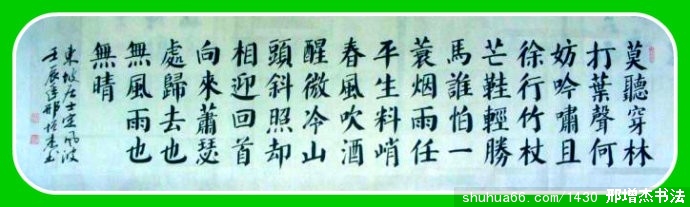 莫聽穿林
打葉聲何
妨吟嘯且
徐行竹杖
芒鞋輕勝
馬誰怕一
蓑烟雨任
平生料峭
春風吹酒
醒微冷山
頭斜照却
相迎回首
向來蕭瑟
處歸去也
無風雨也
無晴
東坡居士定風波
壬辰年邢增杰书
shuhua66.com/1430 邢增杰书法